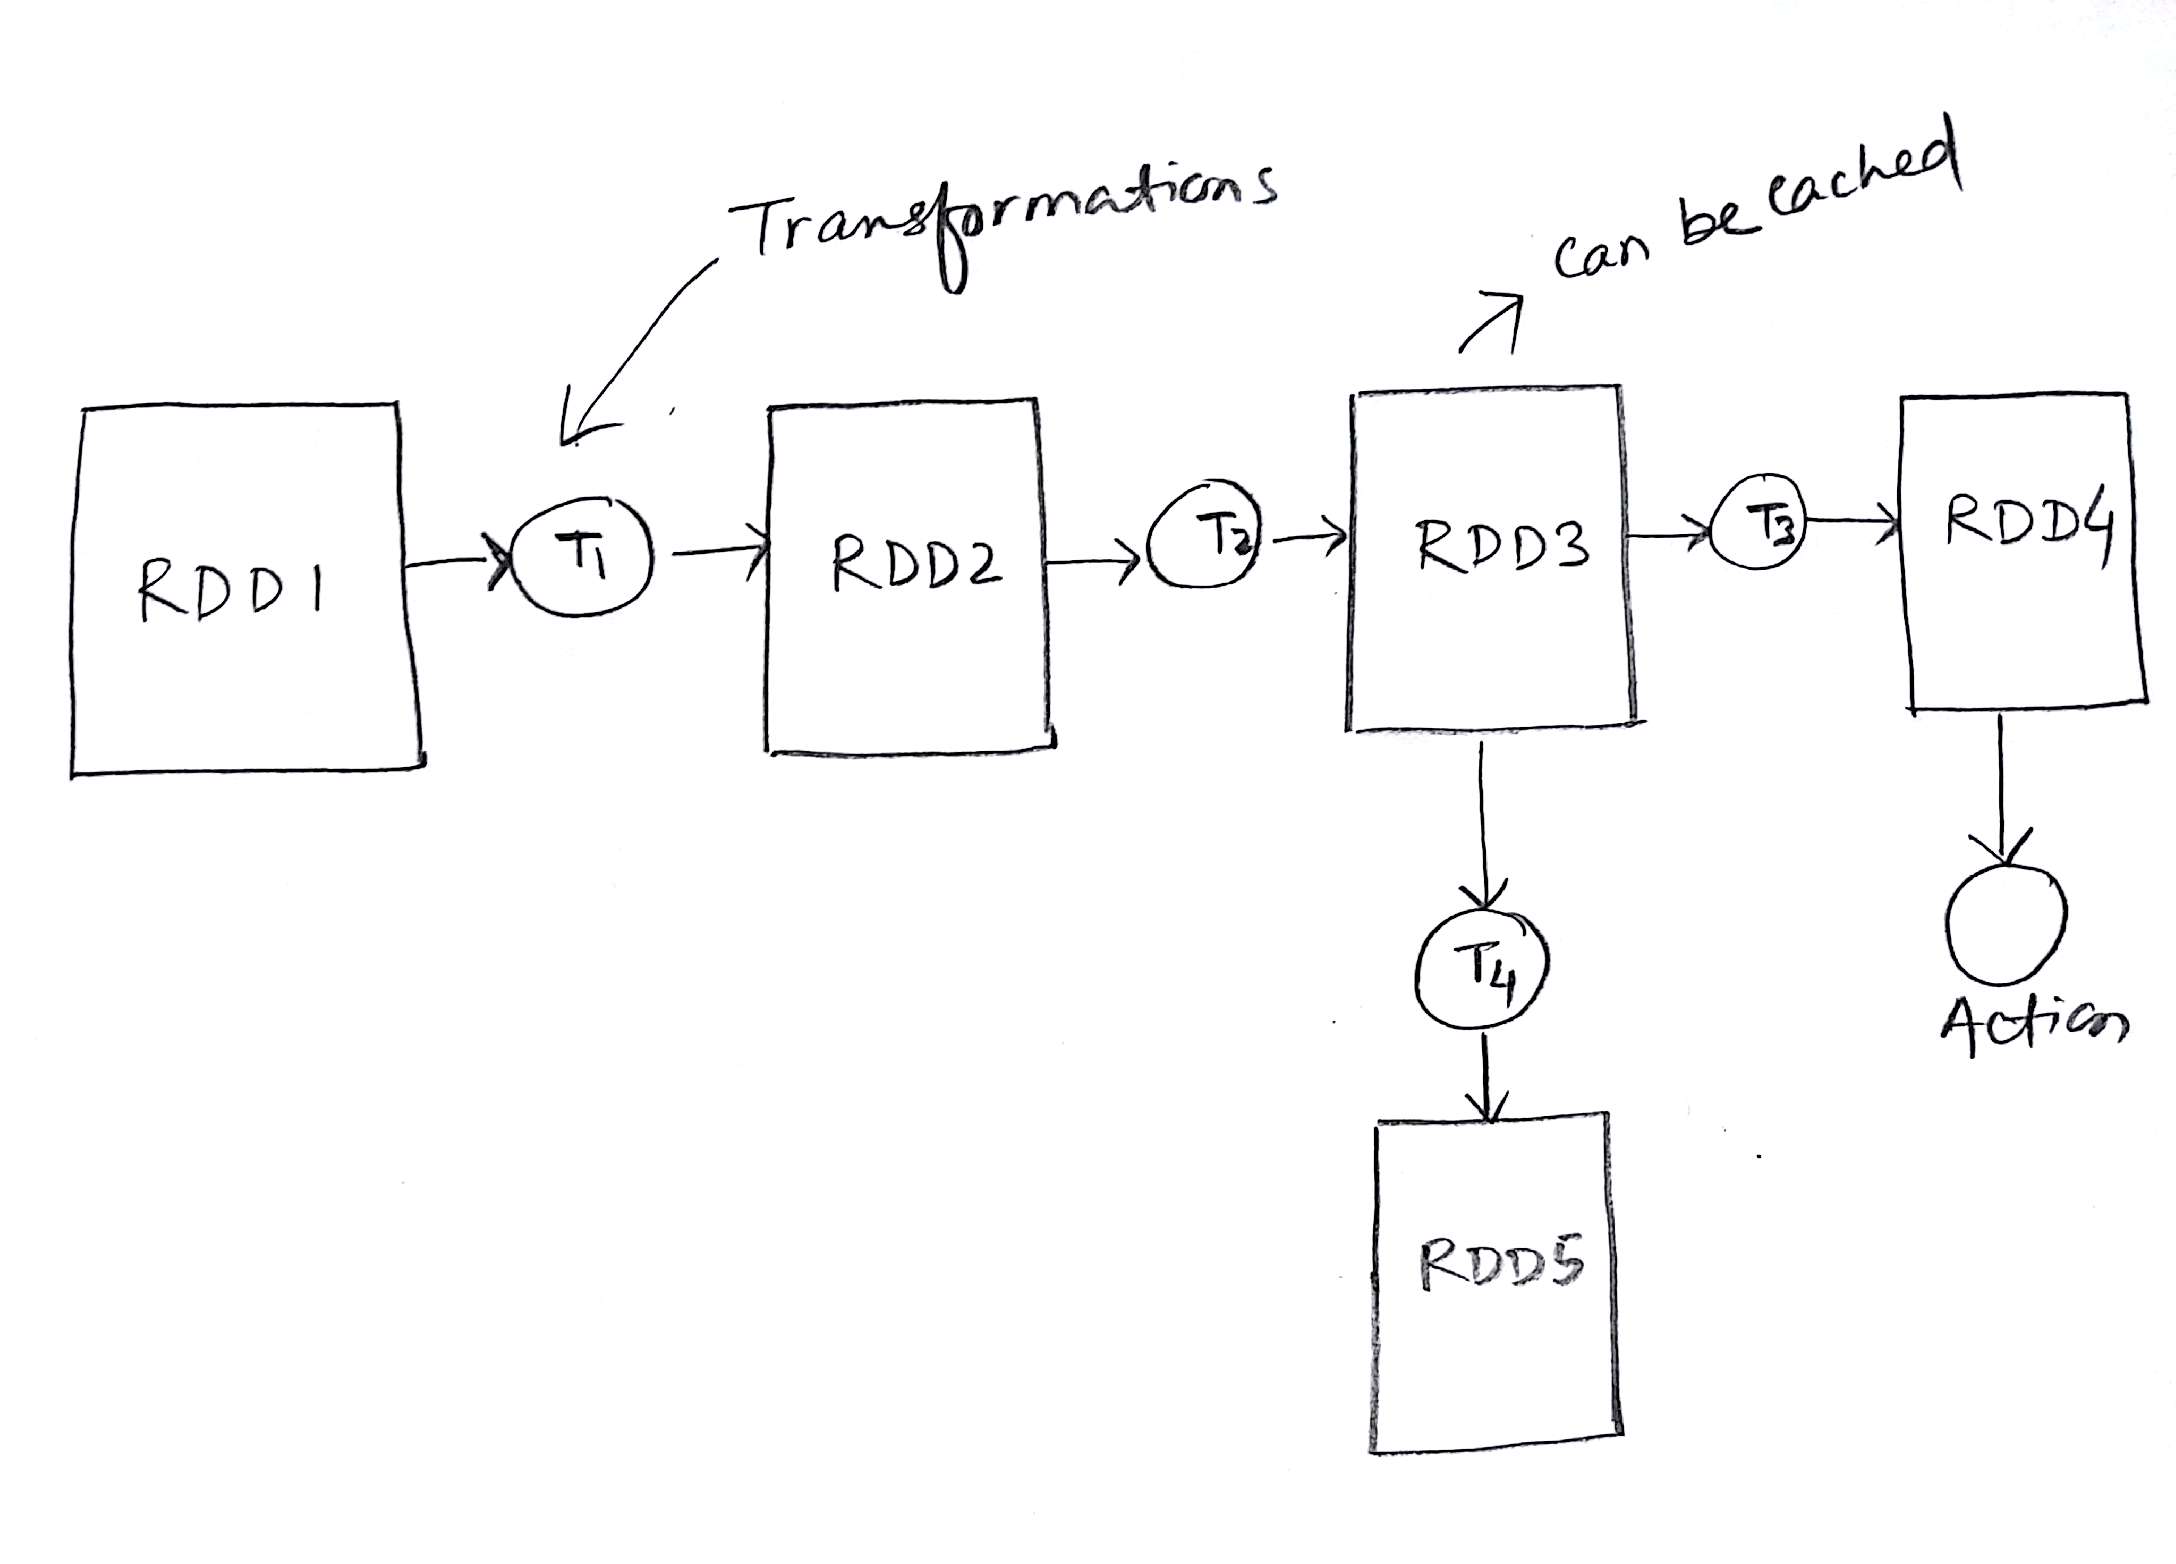 Transformations
can be cached
RDD1
T1
RDD2
T2
RDD3
T3
RDD4
T4
Action
RDD5